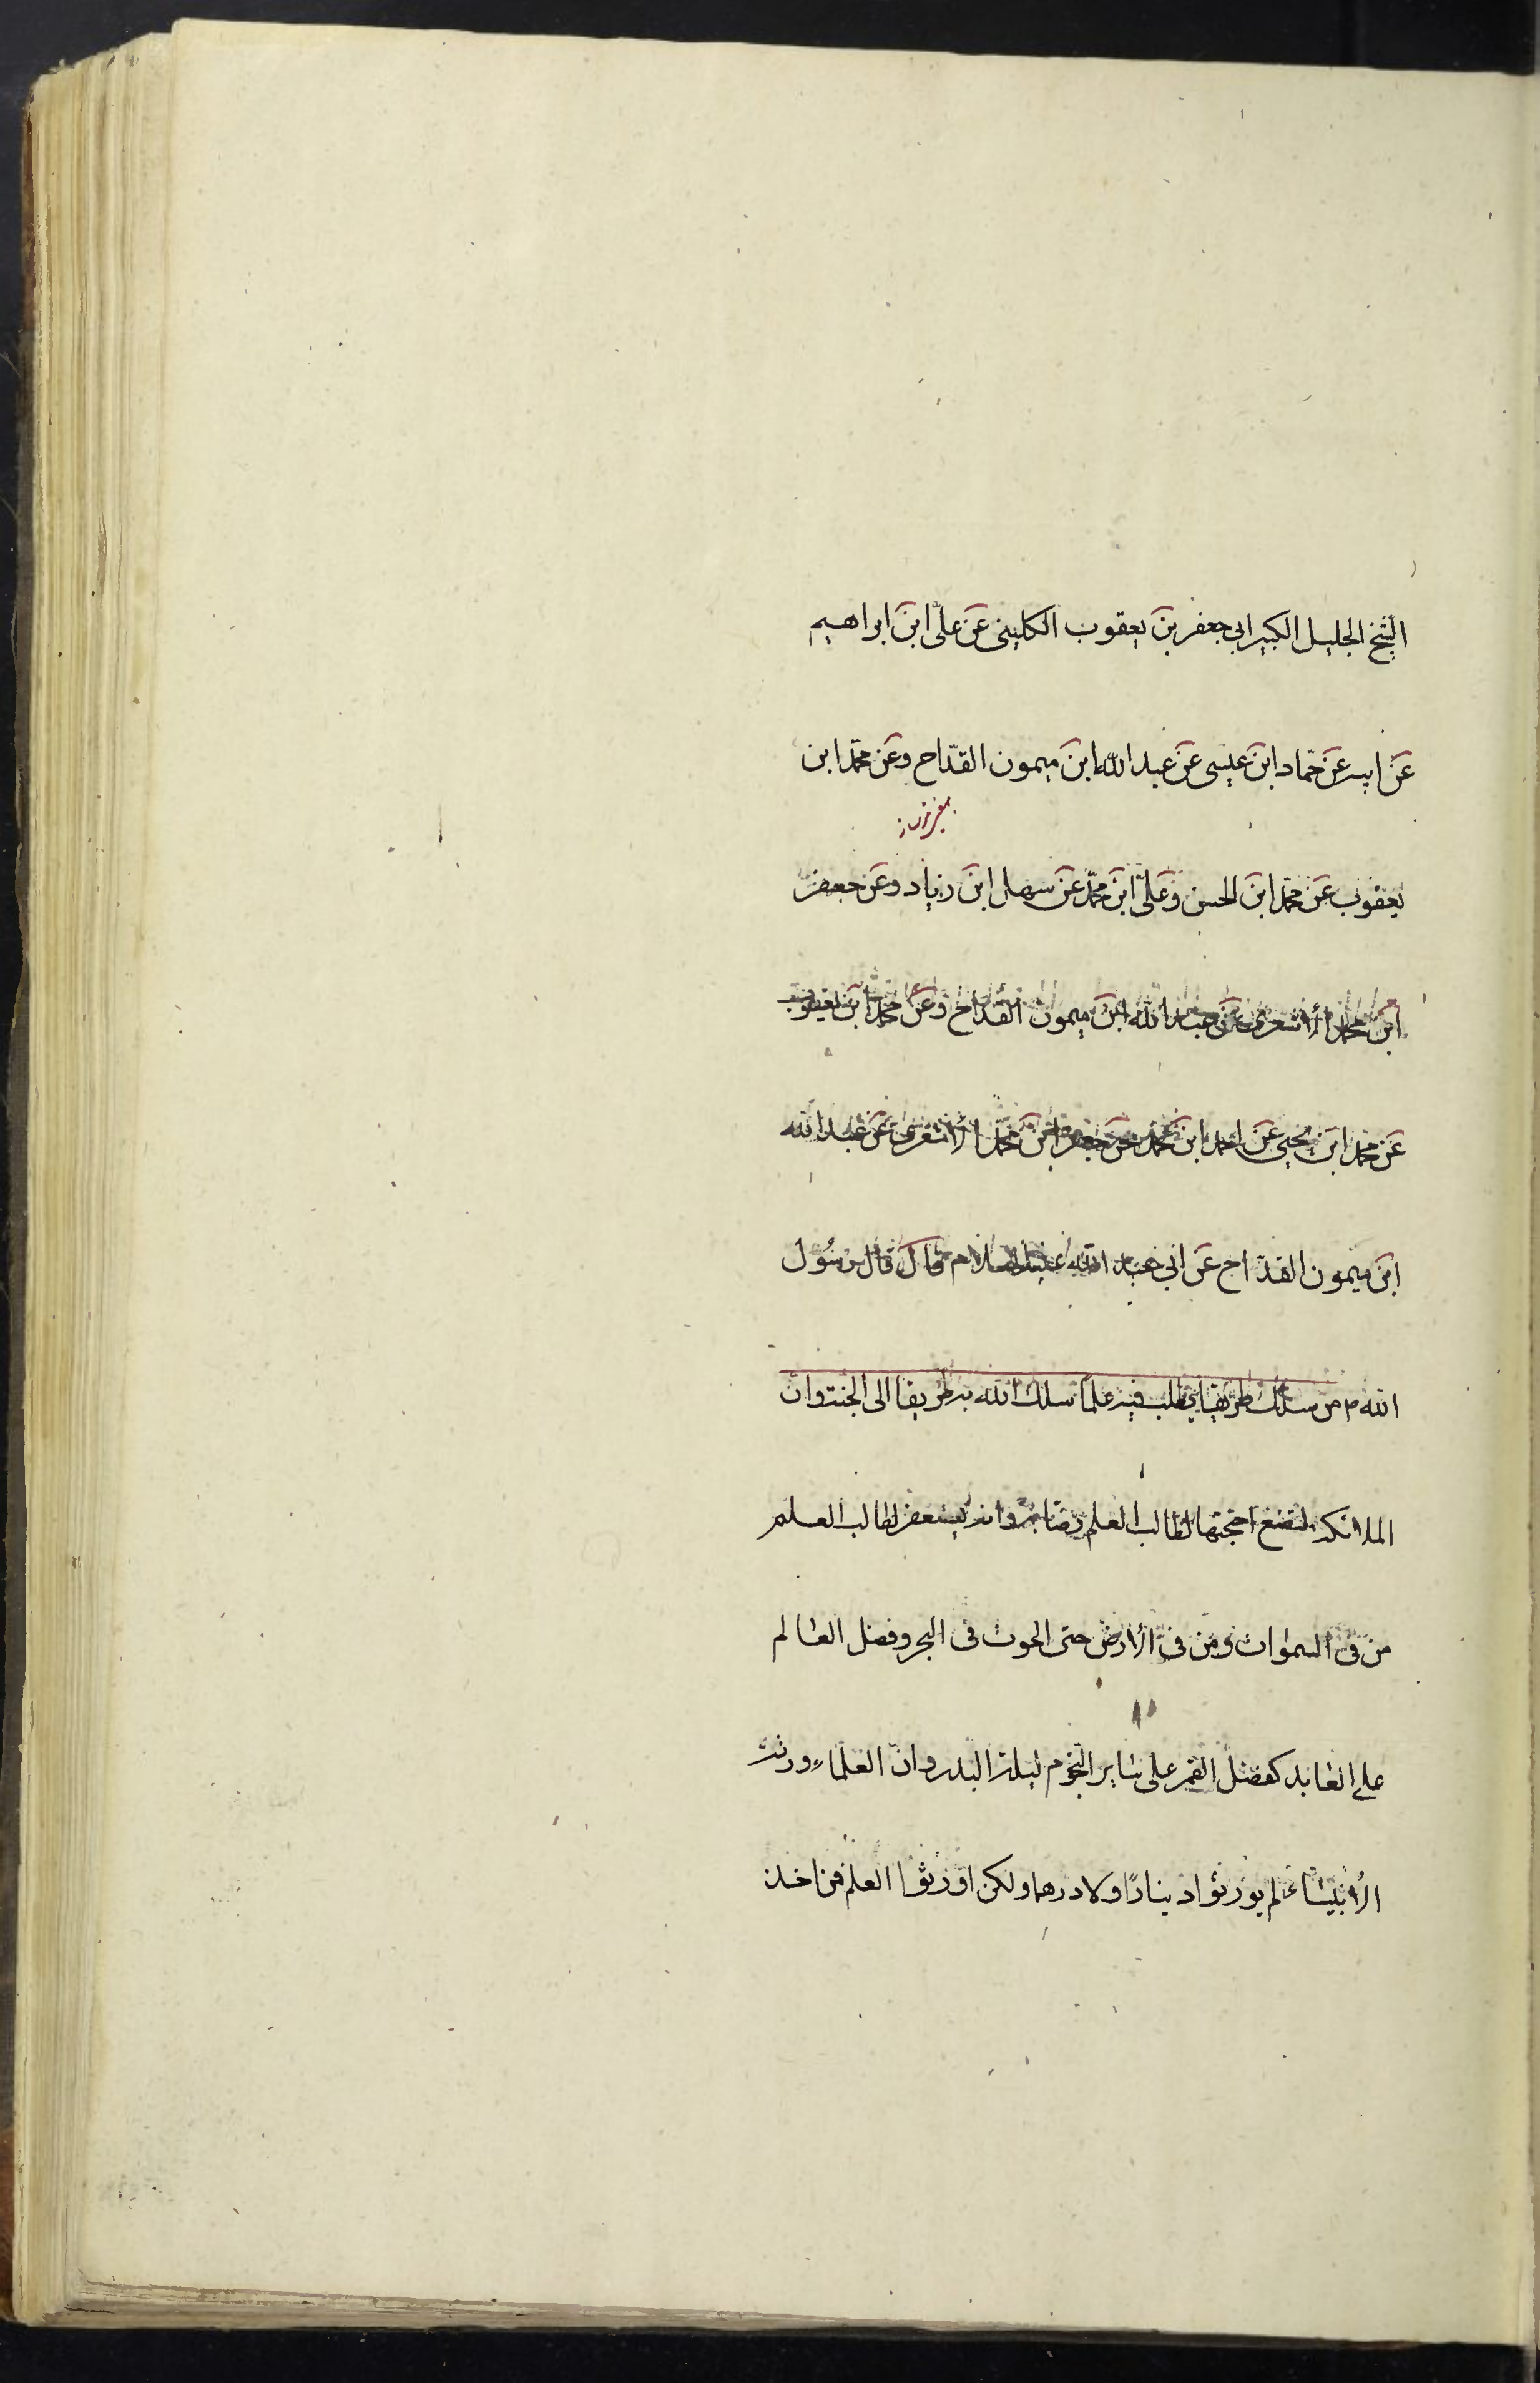 الشيخ الجليل الكبير ابي جعفر بن يعقوب الكليني عن علي ابن ابراهيم
عن ابيه عن حماد ابن عيسى عن عبد الله ابن ميمون القداح وعن محمد ابن
يعقوب عن محمد ابن الحسن وعلي ابن محمد عن سهل ابن زياد وعن جعفر
ابن محمد الأشعري عن عبد الله ابن ميمون القداح وعن محمد ابن يعقوب
عن محمد ابن يحيى عن احمد ابن محمد عن جعفر ابن محمد الأشعري عن عبد الله
ابن ميمون القداح عن ابي عبد الله عليه السلام قال قال رسول
الله ص من سلك طريقا يطلب فيه علما سلك الله به طريقا الى الجنة وان
الملائكة لتضع اجنحتها لطالب العلم رضا به وانه يستغفر لطالب العلم
من في السموات ومن في الأرض حتى الحوت في البحر وفضل العالم
على العابد كفضل القمر على ساير النجوم ليلة البدر وان العلماء ورثة
الأنبياء لم يورثوا دينارا ولا درهما ولكن اورثوا العلم فمن اخذ